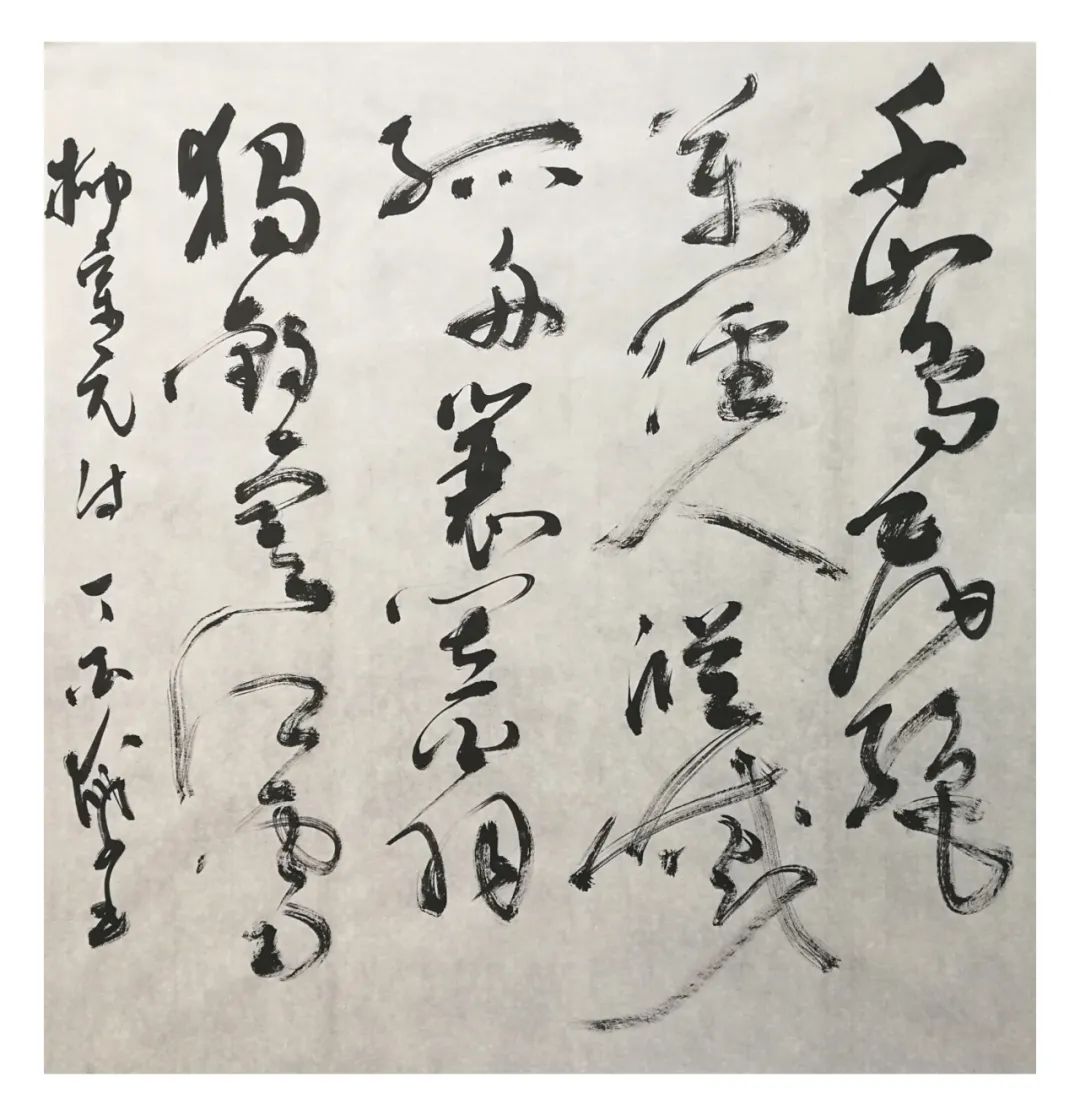 千山鳥飛絕
萬徑人蹤滅
孤舟蓑笠翁
獨釣寒江雪
柳宗元詩 丁酉